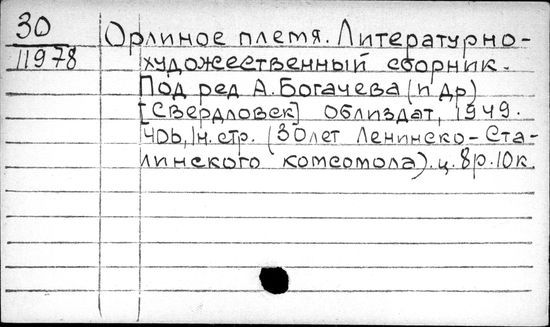 30
11978
Орлиное племя. Литературно-
художественный сборник.
Под ред А. Богачева (и др)
[Свердловск] Облиздат, 1949.
406, 1н. стр. (30 лет Ленинско-Ста-
линского комсомола). ц. 8р. 10к.